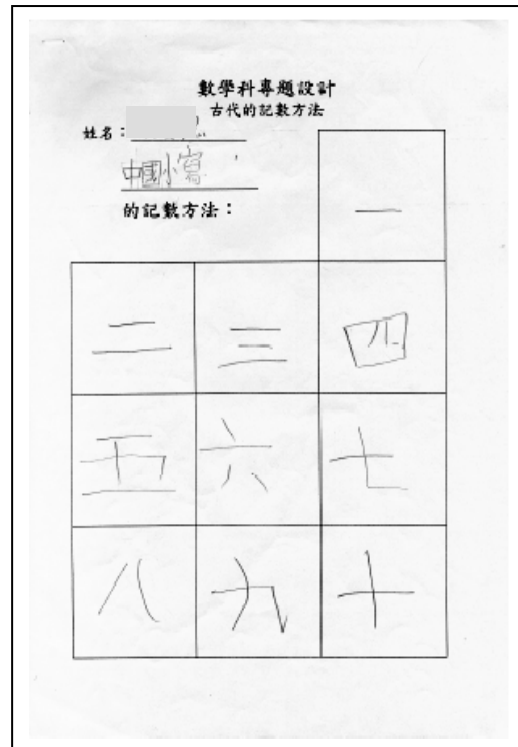 數學科專題設計
古代的記數方法
姓名：
中國小寫
的記數方法：
一
二 三 四
五 六 七
八 九 十